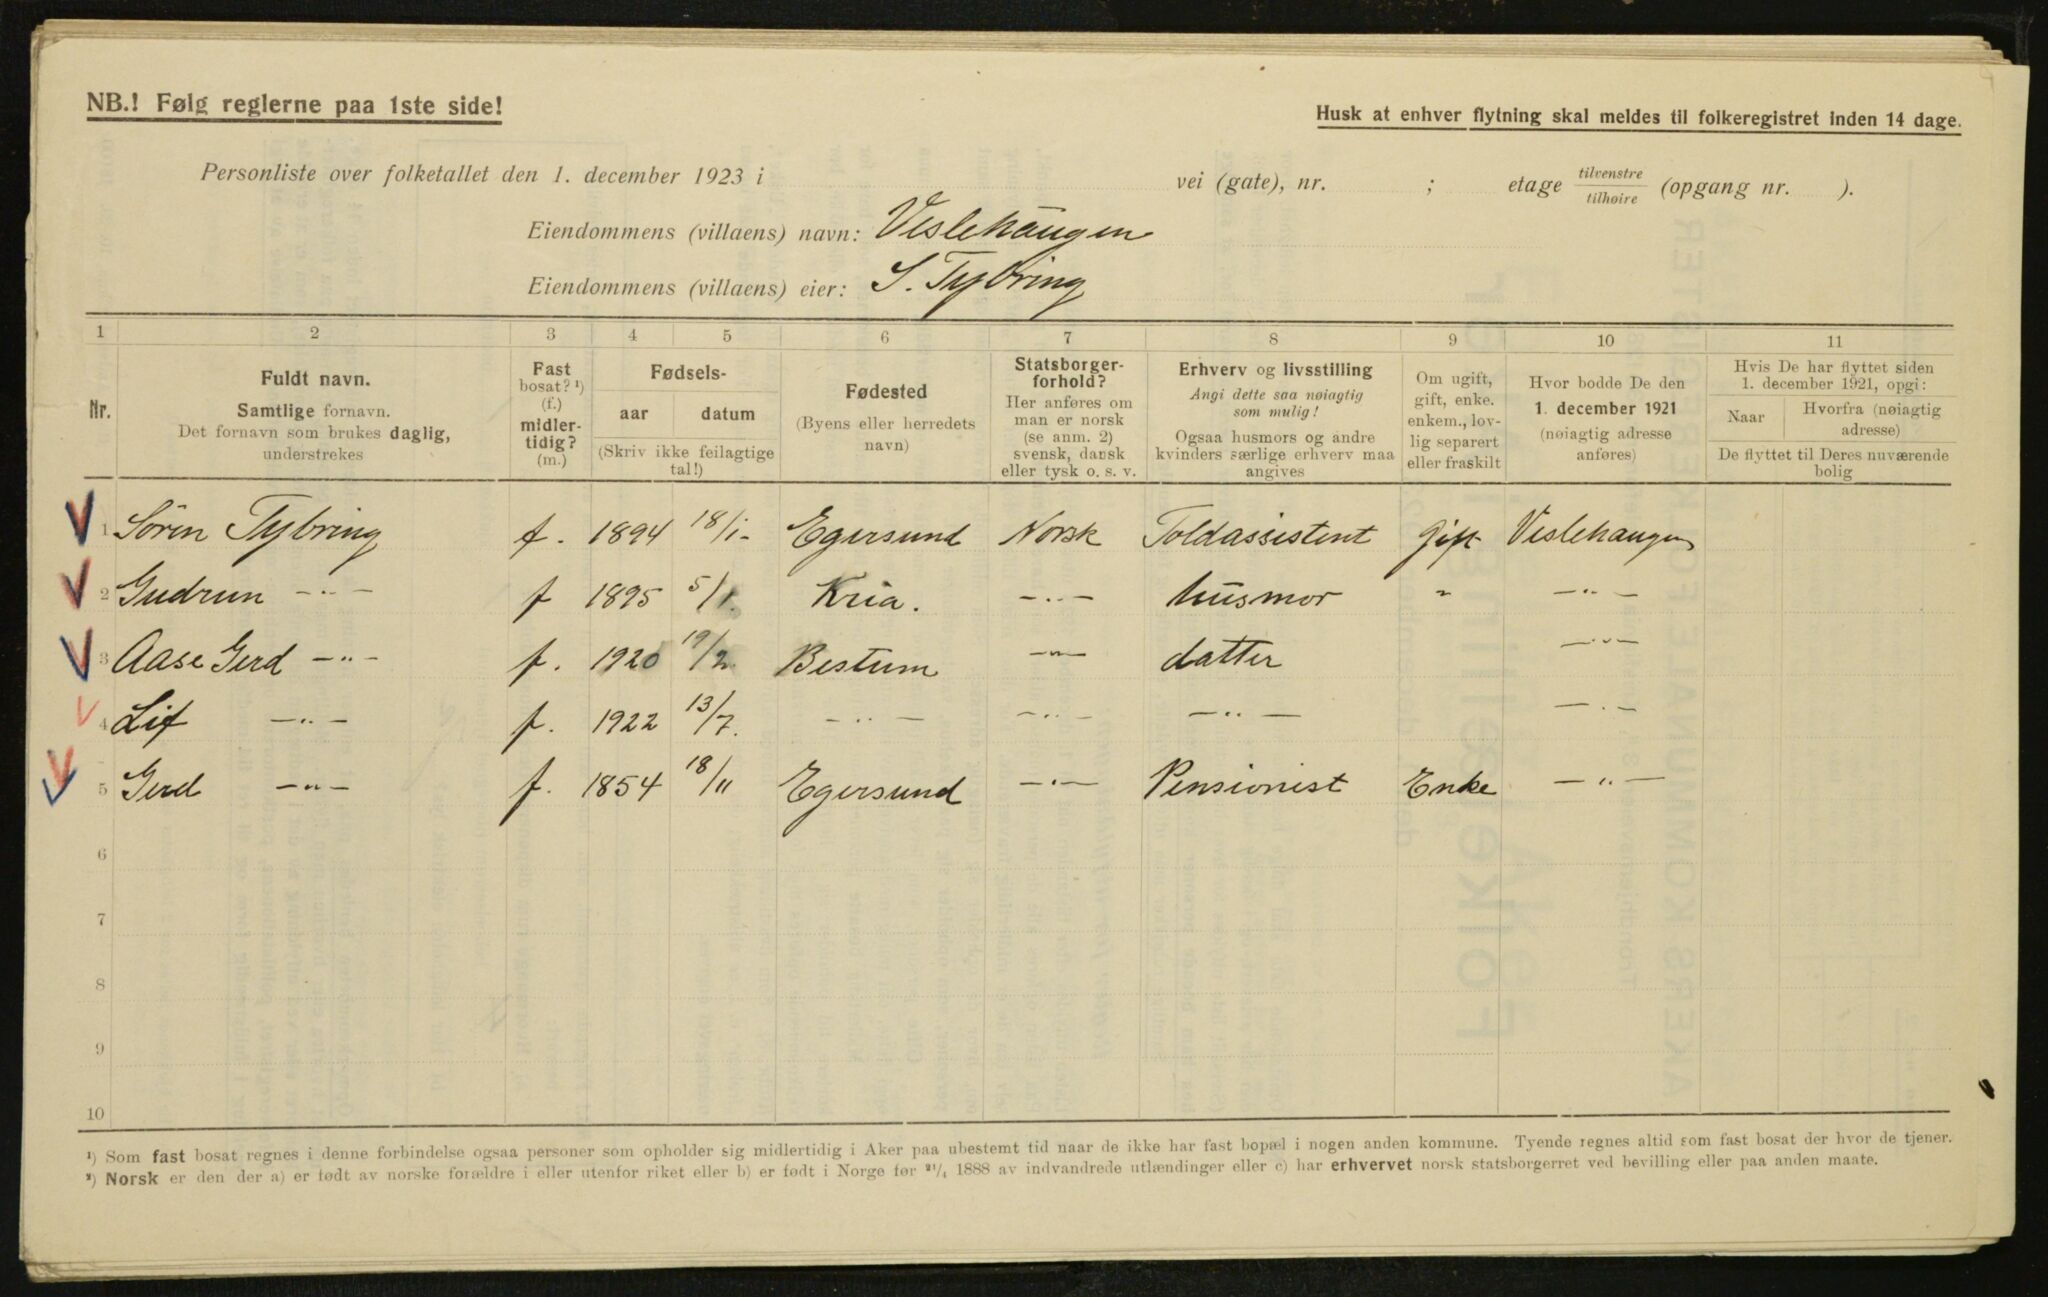 NB.! Følg reglerne paa 1ste side!
Husk at enhver flytning skal meldes til folkeregistret inden 14 dage.
Personliste over folketallet den 1. december 1923 i vei (gate), nr. ; etage tilvenstre tilhøire (opgang nr. ).
Eiendommens (villaens) navn: Veslehaugen
Eiendommens (villaens) eier: S. Tybring
1 2 3 4 5 6 7 8 9 10 11
Nr.
Fuldt navn.
Samtlige fornavn.
Det fornavn som brukes daglig,
understrekes
Fast
bosat? ¹)
(f.)
midler-
tidig?
(m.)
Fødsels-
aar datum
(Skriv ikke feilagtige
tal!)
Fødested
(Byens eller herredets
navn)
Statsborger-
forhold?
Her anføres om
man er norsk
(se anm. 2)
svensk, dansk
eller tysk o. s. v.
Erhverv og livsstilling
Angi dette saa nøiagtig
som mulig!
Ogsaa husmors og andre
kvinders særlige erhverv maa
angives
Om ugift,
gift, enke.
enkem., lov-
lig separert
eller fraskilt
Hvor bodde De den
1. december 1921
(nøiagtig adresse
anføres)
Hvis De har flyttet siden
1. december 1921, opgi:
Naar Hvorfra (nøiagtig
adresse)
De flyttet til Deres nuværende
bolig
1 Sören Tybring f. 1894 18/1- Egersund Norsk Toldassistent gift Veslehaugen
2 Gudrun -"- f 1895 5/1. Kria. -"- husmor " -"-
3 Aase Gerd -"- f. 1920 19/2. Bestum -"- datter -"-
4 Lif -"- f. 1922 13/7. -"- -"- -"- -"-
5 Gerd -"- f. 1854 18/11 Egersund -"- Pensionist Enke -"-
6
7
8
9
10
¹) Som fast bosat regnes i denne forbindelse ogsaa personer som opholder sig midlertidig i Aker paa ubestemt tid naar de ikke har fast bopæl i nogen anden kommune. Tyende regnes altid som fast bosat der hvor de tjener.
²) Norsk er den der a) er født av norske forældre i eller utenfor riket eller b) er født i Norge før ²¹/₄ 1888 av indvandrede utlændinger eller c) har erhvervet norsk statsborgerret ved bevilling eller paa anden maate.